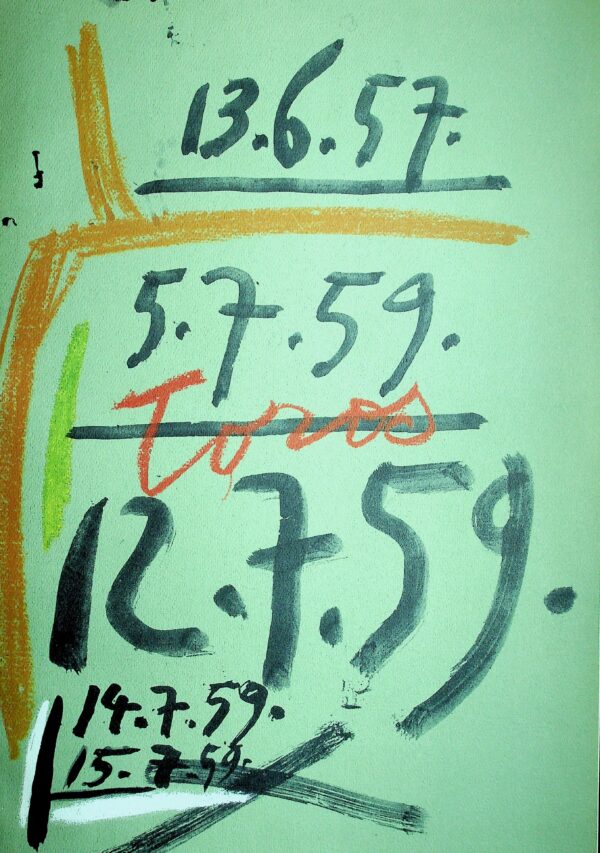 13.6.57.
5.7.59.
Toros
12.7.59.
14.7.59.
15.7.59.